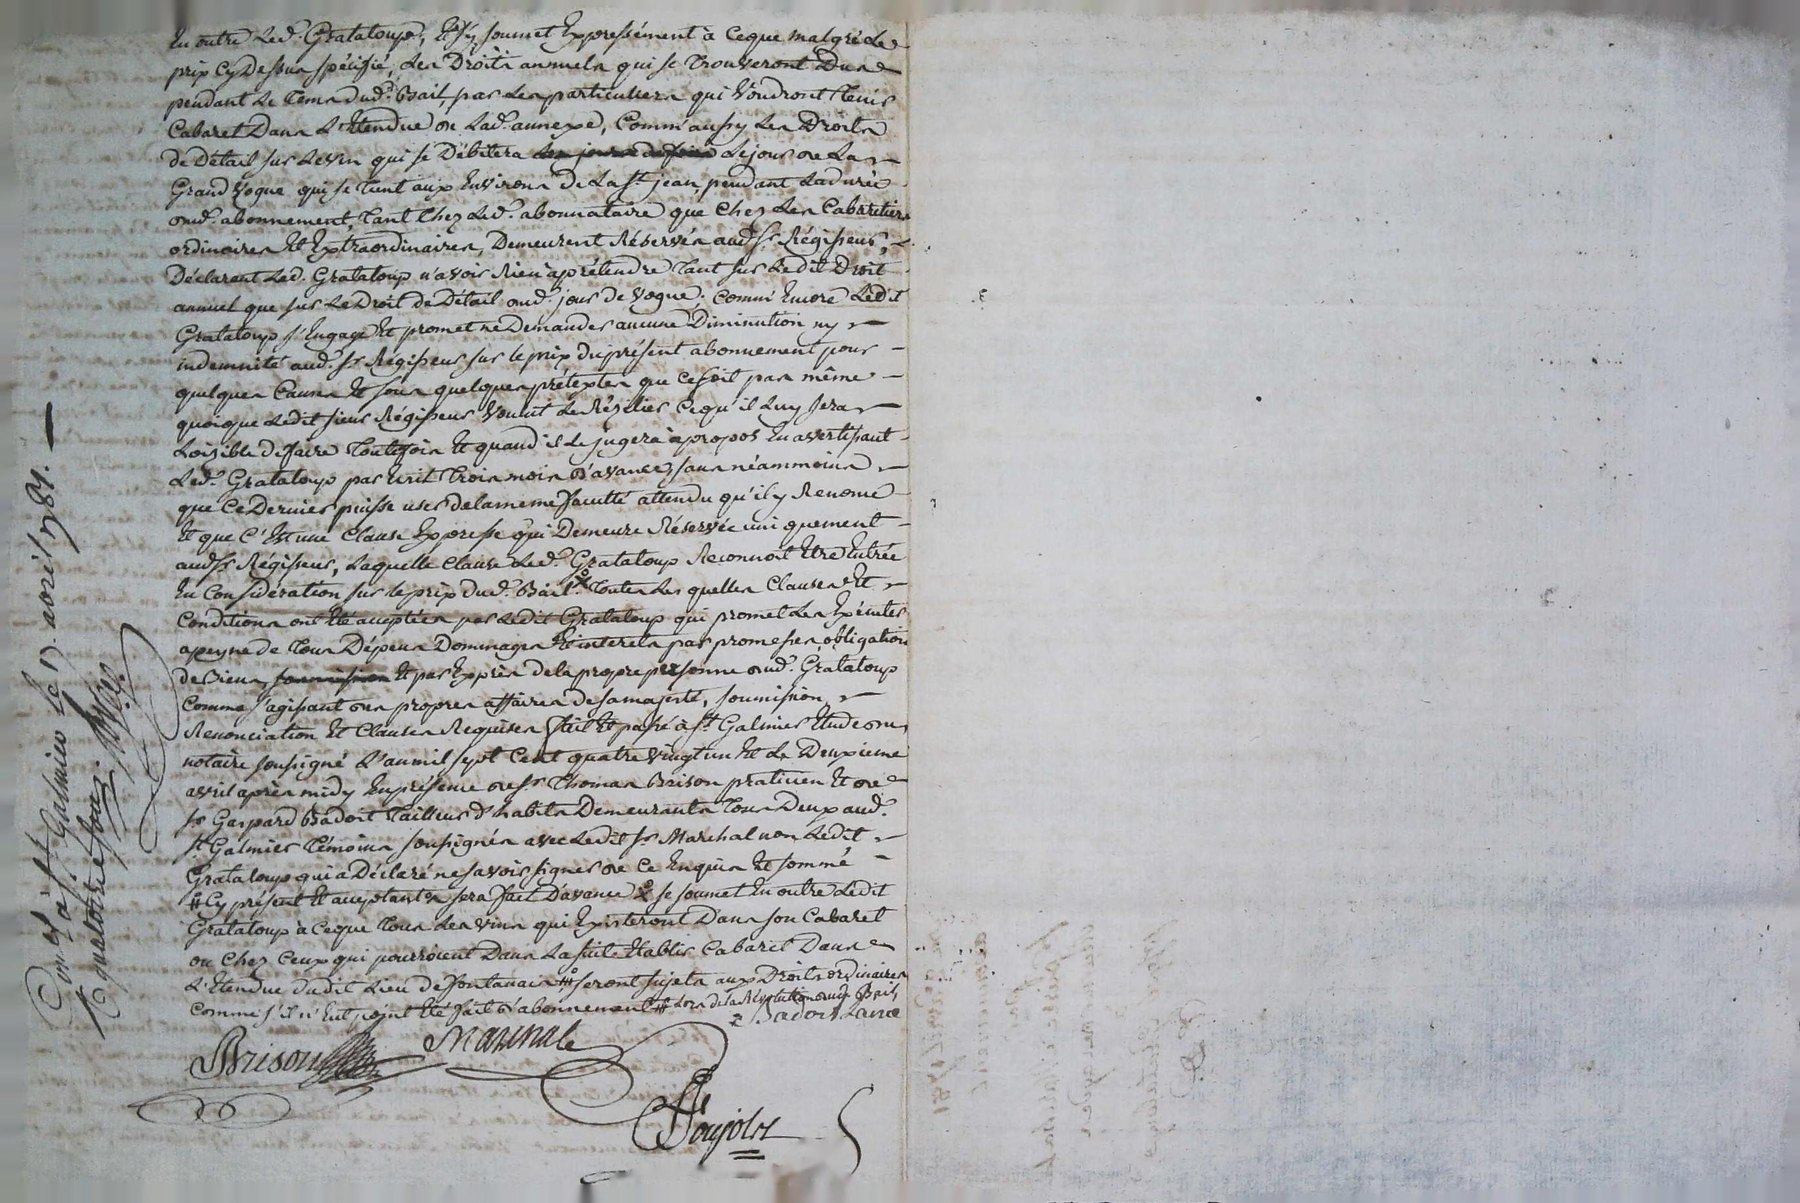 En outre Led. Grataloup, Et Sy soumet Expressément a Ceque malgré Le
prix Cy Dessus spécifié, Les Droits annuels qui se Trouveront Dus
pendant Le Tems dud. Bail, par Les particuliers qui Voudront Tenir
Cabaret Dans L'Etendue de Lad. annexe, Comm'aussy Les Droits
de Détail sur Levin qui se Débitera Lejour de La
Grand Vogue qui se Tient aux Environs De La St. jean, pendant Ladurée
dud. abonnement, Tant Chez Led. abonnataire que Chez Les Cabaretiers
ordinaires Et Extraordinaires, Demeurent Réservés aud. Sr. Régisseur,
Déclarant Led. Grataloup n'avoir Rien aprétendre Tant sur Ledit Droit
annuel que sur Le Droit de Détail dud. jour de Vogue; Comm'Encore Ledit
Grataloup s'Engage Et promet ne Demander aucune Diminution ny
indemnité aud. Sr. Régisseur sur le prix du présent abonnement pour
quelques Causes Et sous quelques prétextes que Cesoit pas même
quoique Ledit sieur Régisseur Voulut Le Résilier Cequ'il Luy sera
Loisible defaire Toutefois Et quand il Le jugera apropos En avertissant
Led. Grataloup par Ecrit Trois mois D'avance, sans néammoins
que Ce Dernier puisse user delameme faculté attendu qu'il y Renonce
Et que C'Est une Clause Expresse qui Demeure Réservée uniquement
aud. Sr. Régisseur, Laquelle Clause Led. Grataloup Reconnoit Etre Entrée
En Considération sur le prix dud. Bail. Toutes Les quelles Clauses Et
Conditions ont Eté acceptées par Ledit Grataloup qui promet Les Exécuter
apeyne de Tous Dépens Dommages Et interets par promesses, obligation
de Biens, Et par Exprès de la propre personne dud. Grataloup
Comme s'agissant des propres affaires de sa majesté, soumission,
Renonciation Et Clauses Requises fait Et passé à St. Galmier Etude du
notaire soussigné L'an mil sept Cent quatre vingt un Et Le Deuxieme
avril après midy En présence de Sr. Thomas Brison praticien Et de
Sr. Gaspard Badoit Tailleur d'habits Demeurants Tous Deux aud.
St. Galmier Témoins soussignés avec Ledit Sr. Marchal non Ledit
Grataloup qui a Déclaré ne savoir signer de Ce Enquis Et sommé
Cy présent Et acceptant sera fait D'avance se soumet En outre Ledit
Grataloup à Ceque Tous Les Vins qui Existeront Dans son Cabaret
ou Chez Ceux qui pourroient Dans La suite Etablir Cabaret Dans
L'Etendue dudit Lieu de Fontanais seront sujets aux Droits ordinaires
Comme s'il n'Eut point Eté fait d'abonnement Lors de la Résolution dud. Bail
Badoit
Brison Marchal
Poujolet
Con.lé à St. Galmier Le avril 1781.
R. quatorze sous.